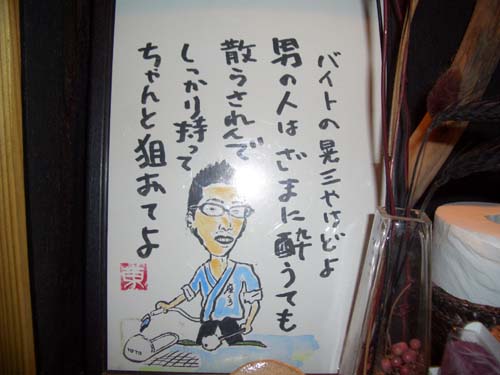 バイトの晃三やけどよ
男の人はざまに酔うても
散らされんで
しっかり持って
ちゃんと狙あてよ
東
TOTO